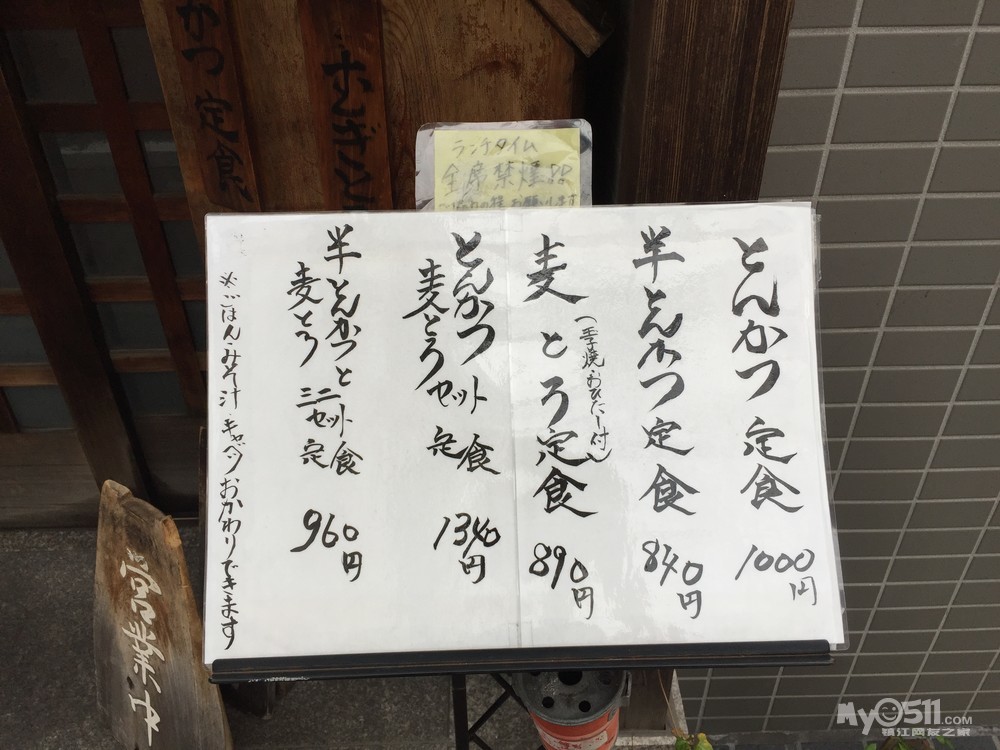 とんかつ定食
1000円
半とんかつ定食
840円
麦とろ定食
(玉子焼・おひたし付)
890円
とんかつ
麦とろ
セット定食
1340円
半とんかつと
麦とろ
ミニセット定食
960円
※ごはん・みそ汁・キャベツおかわりできます
ランチタイム
全席禁煙
お願いします
かつ定食
営業中
My0511.com
镇江网友之家